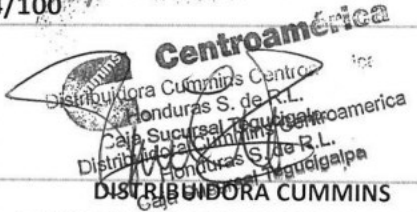 /100
Centroamérica
Cummins
Distribuidora Cummins Centro
Honduras S. de R.L.
Caja Sucursal Tegucigalpa
Distribuidora Cummins Centroamerica
Honduras S. de R.L.
Caja Sucursal Tegucigalpa
DISTRIBUIDORA CUMMINS